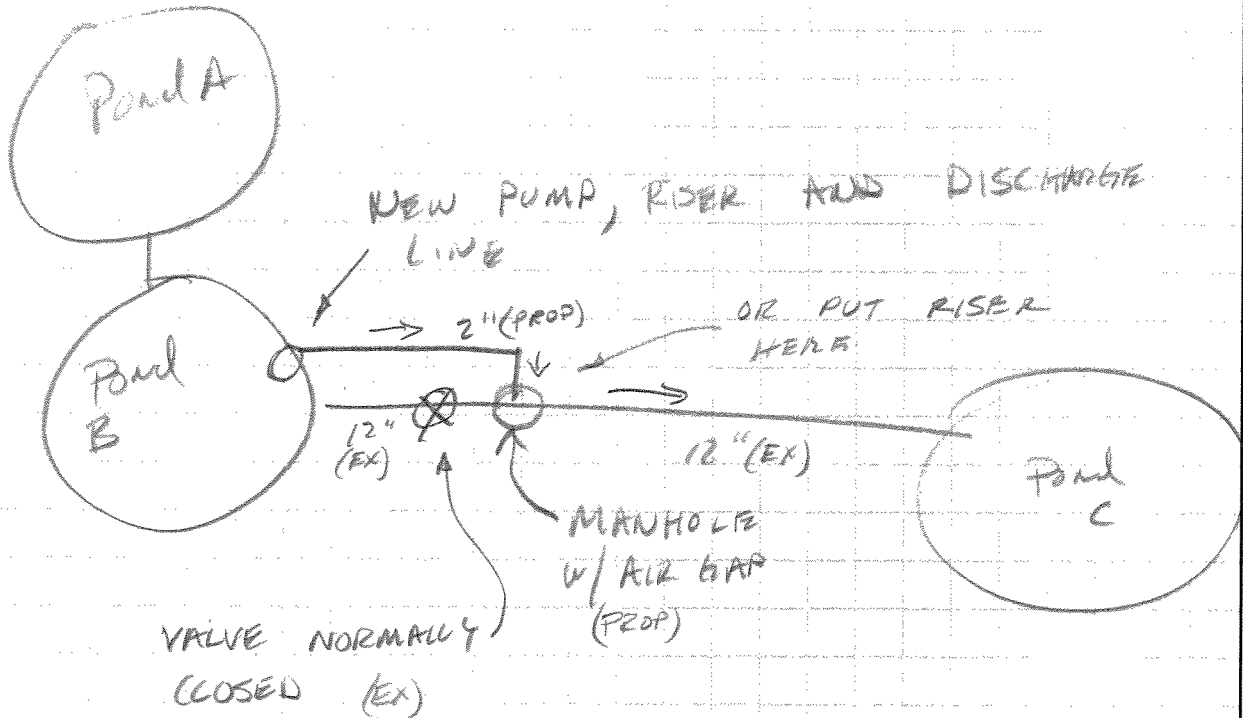 Pond A
NEW PUMP, RISER AND DISCHARGE
LINE
2" (PROP)
OR PUT RISER
HERE
Pond
B
12"
(EX)
12" (EX)
Pond
C
MANHOLE
W/ AIR GAP
(PROP)
VALVE NORMALLY
CLOSED (EX)